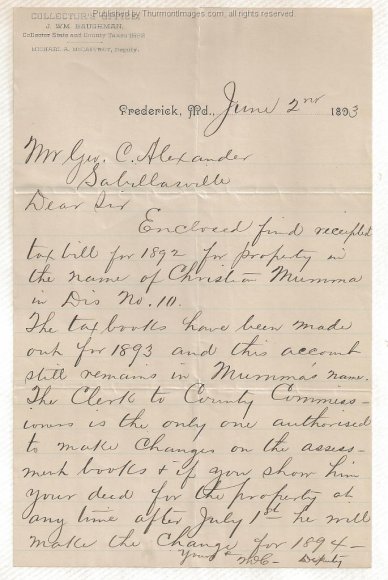 Published by ThurmontImages.com, all rights reserved
COLLECTOR'S OFFICE
J. WM. BAUGHMAN,
Collector State and County Taxes 1892
MICHAEL A. McCAFFREY, Deputy.
Frederick, Md., June 2nd 1893
Mr Geo. C. Alexander
Sabillasville
Dear Sir
Enclosed find receipted
tax bill for 1892 for property in
the name of Christian Mumma
in Dis No. 10.
The tax books have been made
out for 1893 and this account
still remains in Mumma's name.
The Clerk to County Commiss-
ioners is the only one authorised
to make changes on the assess-
ment books & if you show him
your deed for the property at
any time after July 1st he will
make the change for 1894-
Yours
Deputy